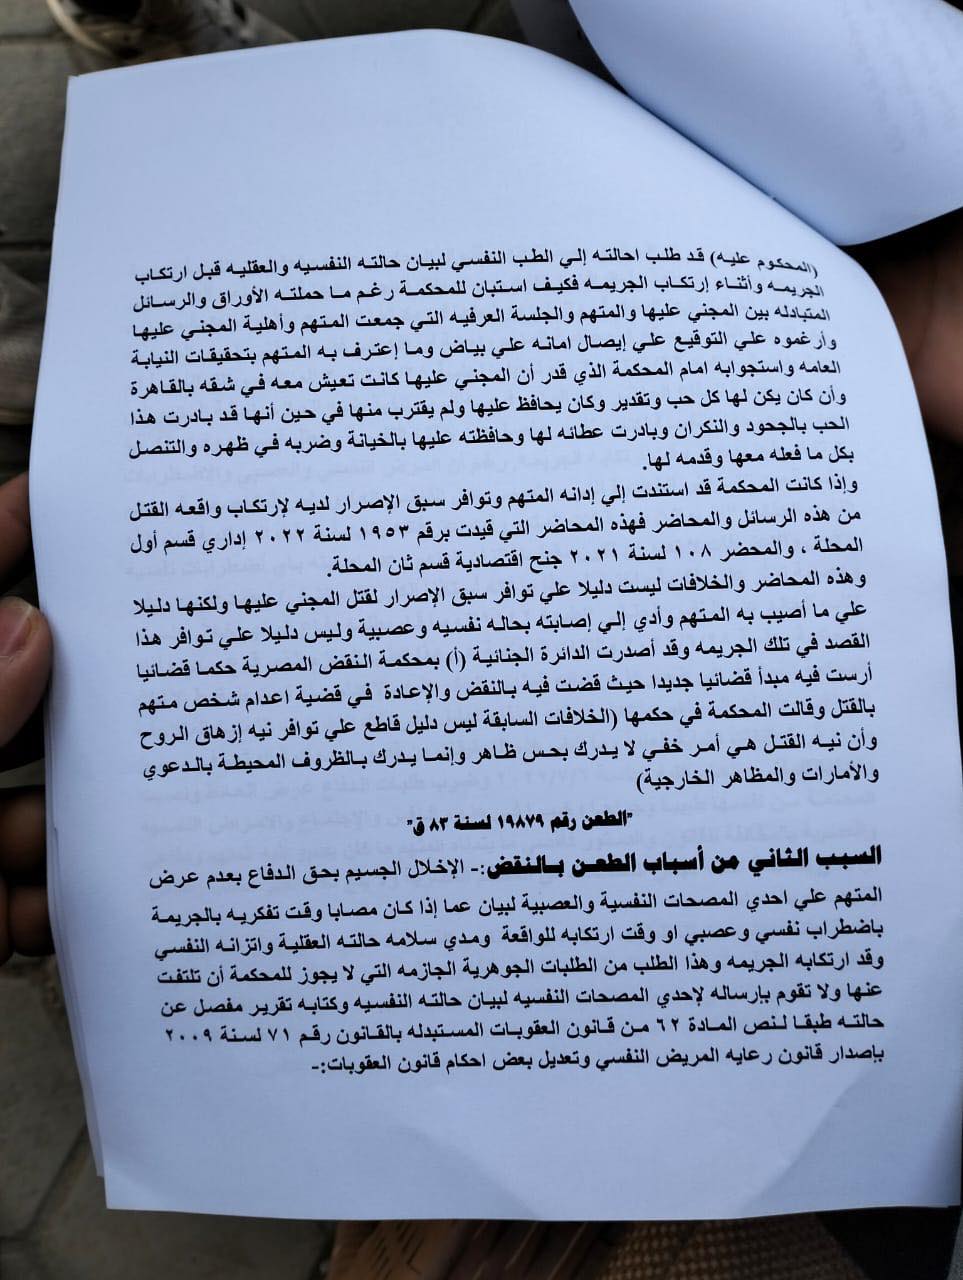 (المحكوم عليه) قد طلب احالته إلي الطب النفسي لبيان حالته النفسيه والعقليه قبل ارتكاب
الجريمه وأثناء إرتكاب الجريمه فكيف استبان للمحكمة رغم ما حملته الأوراق والرسائل
المتبادله بين المجني عليها والمتهم والجلسة العرفيه التي جمعت المتهم وأهلية المجني عليها
وأرغموه علي التوقيع علي إيصال امانه علي بياض وما إعترف به المتهم بتحقيقات النيابة
العامه واستجوابه امام المحكمة الذي قدر أن المجني عليها كانت تعيش معه في شقه بالقاهرة
وأن كان يكن لها كل حب وتقدير وكان يحافظ عليها ولم يقترب منها في حين أنها قد بادرت هذا
الحب بالجحود والنكران وبادرت عطائه لها وحافظته عليها بالخيانة وضربه في ظهره والتنصل
بكل ما فعله معها وقدمه لها.
وإذا كانت المحكمة قد استندت إلي إدانه المتهم وتوافر سبق الإصرار لديه لإرتكاب واقعه القتل
من هذه الرسائل والمحاضر فهذه المحاضر التي قيدت برقم ١٩٥٣ لسنة ٢٠٢٢ إداري قسم أول
المحلة ، والمحضر ١٠٨ لسنة ٢٠٢١ جنح اقتصادية قسم ثان المحلة.
وهذه المحاضر والخلافات ليست دليلا علي توافر سبق الإصرار لقتل المجني عليها ولكنها دليلا
علي ما أصيب به المتهم وأدي إلي إصابته بحاله نفسيه وعصبية وليس دليلا علي توافر هذا
القصد في تلك الجريمه وقد أصدرت الدائرة الجنائية (أ) بمحكمة النقض المصرية حكما قضائيا
أرست فيه مبدأ قضائيا جديدا حيث قضت فيه بالنقض والإعادة في قضية اعدام شخص متهم
بالقتل وقالت المحكمة في حكمها (الخلافات السابقة ليس دليل قاطع علي توافر نيه إزهاق الروح
وأن نيه القتل هي أمر خفي لا يدرك بحس ظاهر وإنما يدرك بالظروف المحيطة بالدعوي
والأمارات والمظاهر الخارجية)
"الطعن رقم ١٩٨٧٩ لسنة ٨٣ ق"
السبب الثاني من أسباب الطعن بالنقض:- الإخلال الجسيم بحق الدفاع بعدم عرض
المتهم علي احدي المصحات النفسية والعصبية لبيان عما إذا كان مصابا وقت تفكريه بالجريمة
باضطراب نفسي وعصبي او وقت ارتكابه للواقعة ومدي سلامه حالته العقلية واتزانه النفسي
وقد ارتكابه الجريمه وهذا الطلب من الطلبات الجوهرية الجازمه التي لا يجوز للمحكمة أن تلتفت
عنها ولا تقوم بإرساله لإحدي المصحات النفسيه لبيان حالته النفسيه وكتابه تقرير مفصل عن
حالته طبقا لنص المادة ٦٢ من قانون العقوبات المستبدله بالقانون رقم ٧١ لسنة ٢٠٠٩
بإصدار قانون رعايه المريض النفسي وتعديل بعض احكام قانون العقوبات:-